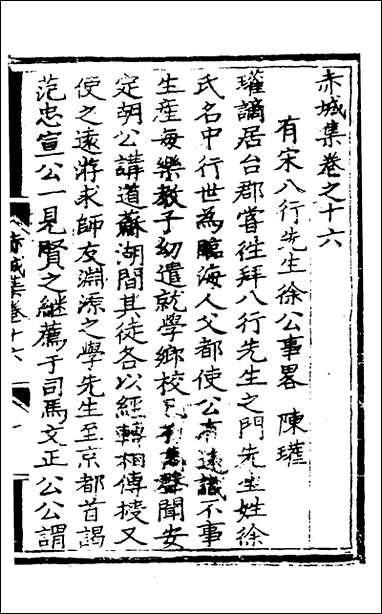 赤城集卷之十六
有宋八行先生徐公事畧 陳瓘
瓘謫居台郡嘗往拜八行先生之門先生姓徐
氏名中行世為臨海人父都使公有遠識不事
生産每樂教子幼遣就學鄉校聲聞安
定胡公講道蘇湖間其徒各以經轉相傳授又
使之遠游求師友淵源之學先生至京都首謁
范忠宣公一見賢之継薦于司馬文正公公謂
赤城集卷十六
一